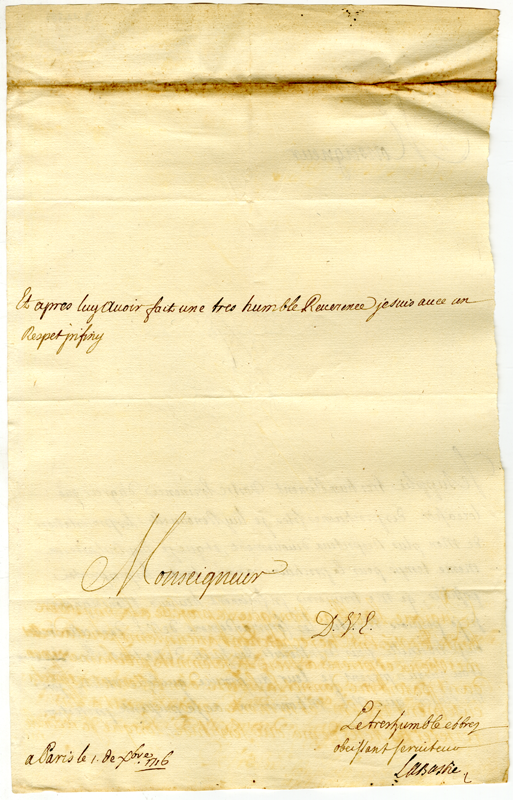 Et apres luy Avoir fait une tres humble Reuerence je suis auec un
Respet jnfiny
Monseigneur
D. V. E.
Le tres humble et tres
obeissant seruiteur
a Paris le 1. de Xbre 1716